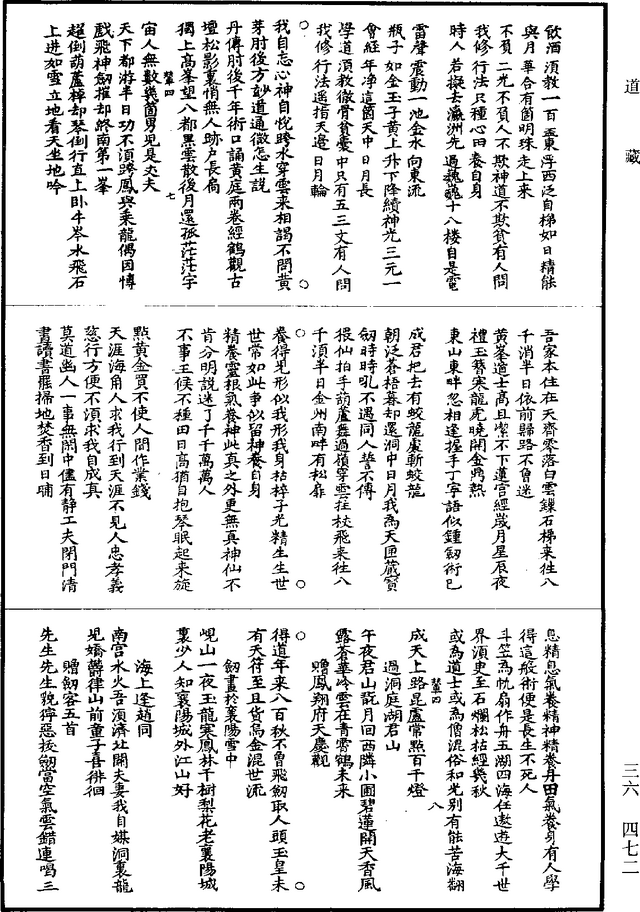 道藏
飲酒須教一百盃東浮西泛自梯如日精能
與月華合有箇明珠走上來
不負三光不負人不欺神道不欺貧有人問
我修行法只種心田養自身
時人若擬去瀛洲先過巍巍十八樓自是電
雷聲震動一池金水向東流
瓶子如金玉子黃上升下降續神光三元一
會經年淨這箇天中日月長
學道須教徹骨貧囊中只有五三文有人問
我修行法遙指天邊日月輪
我自忘心神自悅跨水穿雲來相謁不問黃
芽肘後方妙道通微怎生說
丹傳肘後千年術口誦黃庭兩卷經鶴觀古
壇松影裏悄無人跡戶長扃
獨上高峯望八都黑雲散後月還孤茫茫宇
輦四
七
宙人無數幾箇男兒是丈夫
天下都游半日功不須跨鳳與乘龍偶因博
戲飛神劒摧却終南第一峯
趂倒葫蘆掉却琴倒行直上卧牛岑水飛石
上迸如雪立地看天坐地吟
吾家本住在天齊零落白雲鏁石梯來往八
千消半日依前歸路不曾迷
黃峯道士高且潔不下蓮宮經歲月星辰夜
禮玉簪寒龍虎曉開金鼎熱
東山東畔忽相逢握手丁寧語似鍾劒術已
成君把去有蛟龍處斬蛟龍
朝泛蒼梧暮却還洞中日月我爲天匣藏寶
劒時時吼不遇同人誓不傳
偎仙拍手葫蘆舞過嶺穿雲拄杖飛來往八
千須半日金州南畔有松扉
養得兒形似我形我身枯悴子光精生生世
世常如此爭似留神養自身
精養靈根氣養神此真之外更無真神仙不
肯分明說迷了千千萬萬人
不事王侯不種田日高猶自抱琴眠起來旋
點黃金買不使人間作業錢
天涯海角人求我行到天涯不見人忠孝義
慈行方便不須求我自成真
莫道幽人一事無閑中儘有靜工夫閉門清
晝讀書罷掃地焚香到日晡
息精息氣養精神精養丹田氣養身有人學
得這般術便是長生不死人
斗笠爲帆扇作舟五湖四海任遨遊大千世
界須臾至石爛松枯經幾秋
或爲道士或爲僧混俗和光別有能苦海翻
成天上路毘盧常點百千燈
輦四
八
過洞庭湖君山
午夜君山翫月回西隣小圃碧蓮開天香風
露蒼華冷雲在青霄鶴未來
贈鳳翔府天慶觀
得道年來八百秋不曾飛劒取人頭玉皇未
有天符至且貨烏金混世流
劒畫於襄陽雪中
峴山一夜玉龍寒鳳林千樹梨花老襄陽城
裏少人知襄陽城外江山好
海上逢趙同
南宮水火吾須濟北闕夫妻我自媒洞裏龍
兒嬌鬱律山前童子喜徘徊
贈劒客五首
先生先生貌獰惡拔劒當空氣雲錯連喝三
三六 四七二